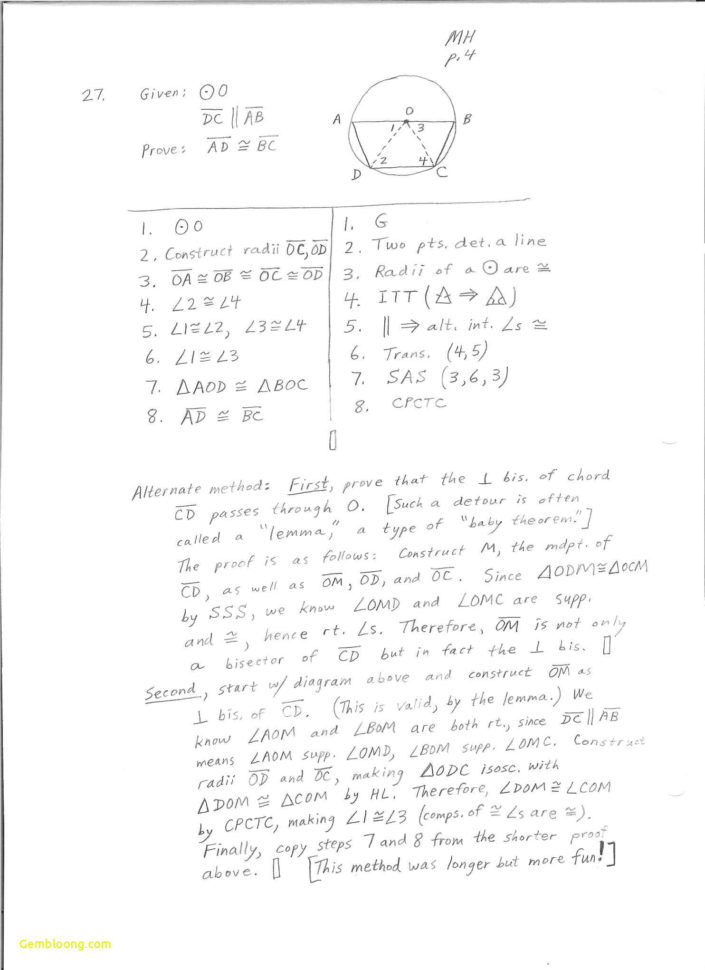 MH
p.4
27. Given: ⊙O
DC || AB
Prove: AD ≅ BC
A O B
1 3
2 4
D C
1. ⊙O 1. G
2. Construct radii OC, OD 2. Two pts. det. a line
3. OA ≅ OB ≅ OC ≅ OD 3. Radii of a ⊙ are ≅
4. ∠2 ≅ ∠4 4. ITT (△ ⇒ △)
5. ∠1≅∠2, ∠3≅∠4 5. || ⇒ alt. int. ∠s ≅
6. ∠1 ≅ ∠3 6. Trans. (4,5)
7. △AOD ≅ △BOC 7. SAS (3,6,3)
8. AD ≅ BC 8. CPCTC
Alternate method: First, prove that the ⊥ bis. of chord
CD passes through O. [Such a detour is often
called a "lemma," a type of "baby theorem."]
The proof is as follows: Construct M, the mdpt. of
CD, as well as OM, OD, and OC. Since △ODM≅△OCM
by SSS, we know ∠OMD and ∠OMC are supp.
and ≅, hence rt. ∠s. Therefore, OM is not only
a bisector of CD but in fact the ⊥ bis. ▯
Second, start w/ diagram above and construct OM as
⊥ bis. of CD. (This is valid, by the lemma.) We
know ∠AOM and ∠BOM are both rt., since DC || AB
means ∠AOM supp. ∠OMD, ∠BOM supp. ∠OMC. Construct
radii OD and OC, making △ODC isosc. with
△DOM ≅ △COM by HL. Therefore, ∠DOM ≅ ∠COM
by CPCTC, making ∠1≅∠3 (comps. of ≅ ∠s are ≅).
Finally, copy steps 7 and 8 from the shorter proof
above. ▯ [This method was longer but more fun!]
Gembloong.com